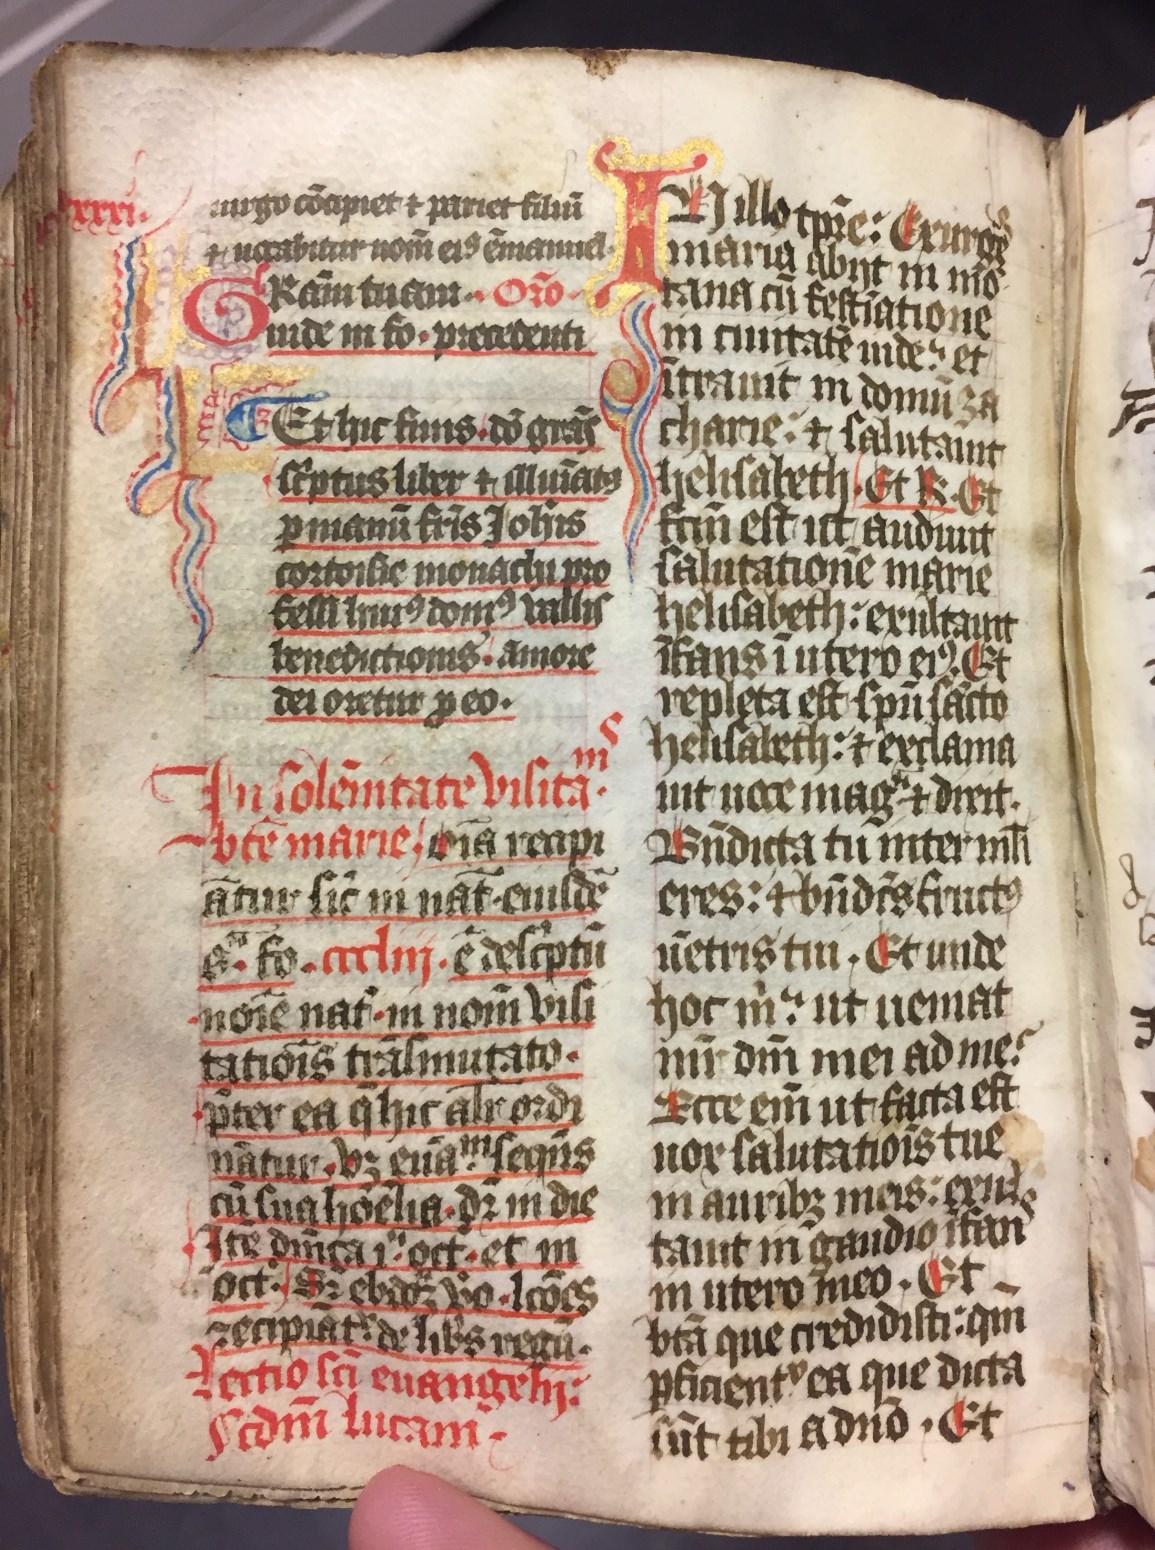 xxxi.
uirgo cōcipiet ⁊ pariet filiū
⁊ uocabitur nom̄ eiꝰ ēmanuel.
GRām tuam. Oro.
uide in fo. precedenti
Et hic finis. dō grās
sc̄ptus liber ⁊ illuīatꝰ
ꝑ manū fr̄is Joh̄is
monachi pro
fessi huiꝰ domꝰ uallis
benedictionis. amore
dei oretur ꝑ eo.
In solēnitate visitaᵐˢ.
bt̄e marie, oīa recipi
ātur sic̄ in nat̄. eiusdē
sᵃ. fo. cccliij. ē desc̄ptū
noīe nat̄. in nom̄ visi
tatiōis trāsmutato.
p̄ter ea q̄ hic alr̄ ordi
nātur. vꝫ euāᵐ seq̄ns
cū sua homelia. dr̄ in die
Itē dn̄ica iᵃ oct. et in
oct. Sꝫ ebdōꝫ v̄o. lcōes
recipiāt᷑ de lib̄s regū.
Lectio sc̄i euangelij:
Scdm̄ lucam.
IN illo tp̄re: Exurgēs
maria abijt in mō
tana cū festīatione
in ciuitatē iude. et
ītrauit in domū za
charie: ⁊ salutauit
helisabeth. Et R. Et
fcm̄ est ut audiuit
salutationē marie
helisabeth: exultauit
īfans ī utero eiꝰ. Et
repleta est spū sācto
helisabeth: ⁊ exclama
uit uoce magᵃ ⁊ dixit.
Bn̄dicta tu inter mli
eres: ⁊ bn̄dc̄s fructꝰ
uētris tui. Et unde
hoc m̄. ut ueniat
mr̄ dm̄ mei ad me:
Ecce em̄ ut facta est
uox salutatiōis tue
in auribꝫ meis: exul
tauit in gaudio īfans
in utero meo. Et
bt̄ā que credidisti: qm̄
ꝑficient᷑ ea que dicta
sūt tibi a dn̄o. Et